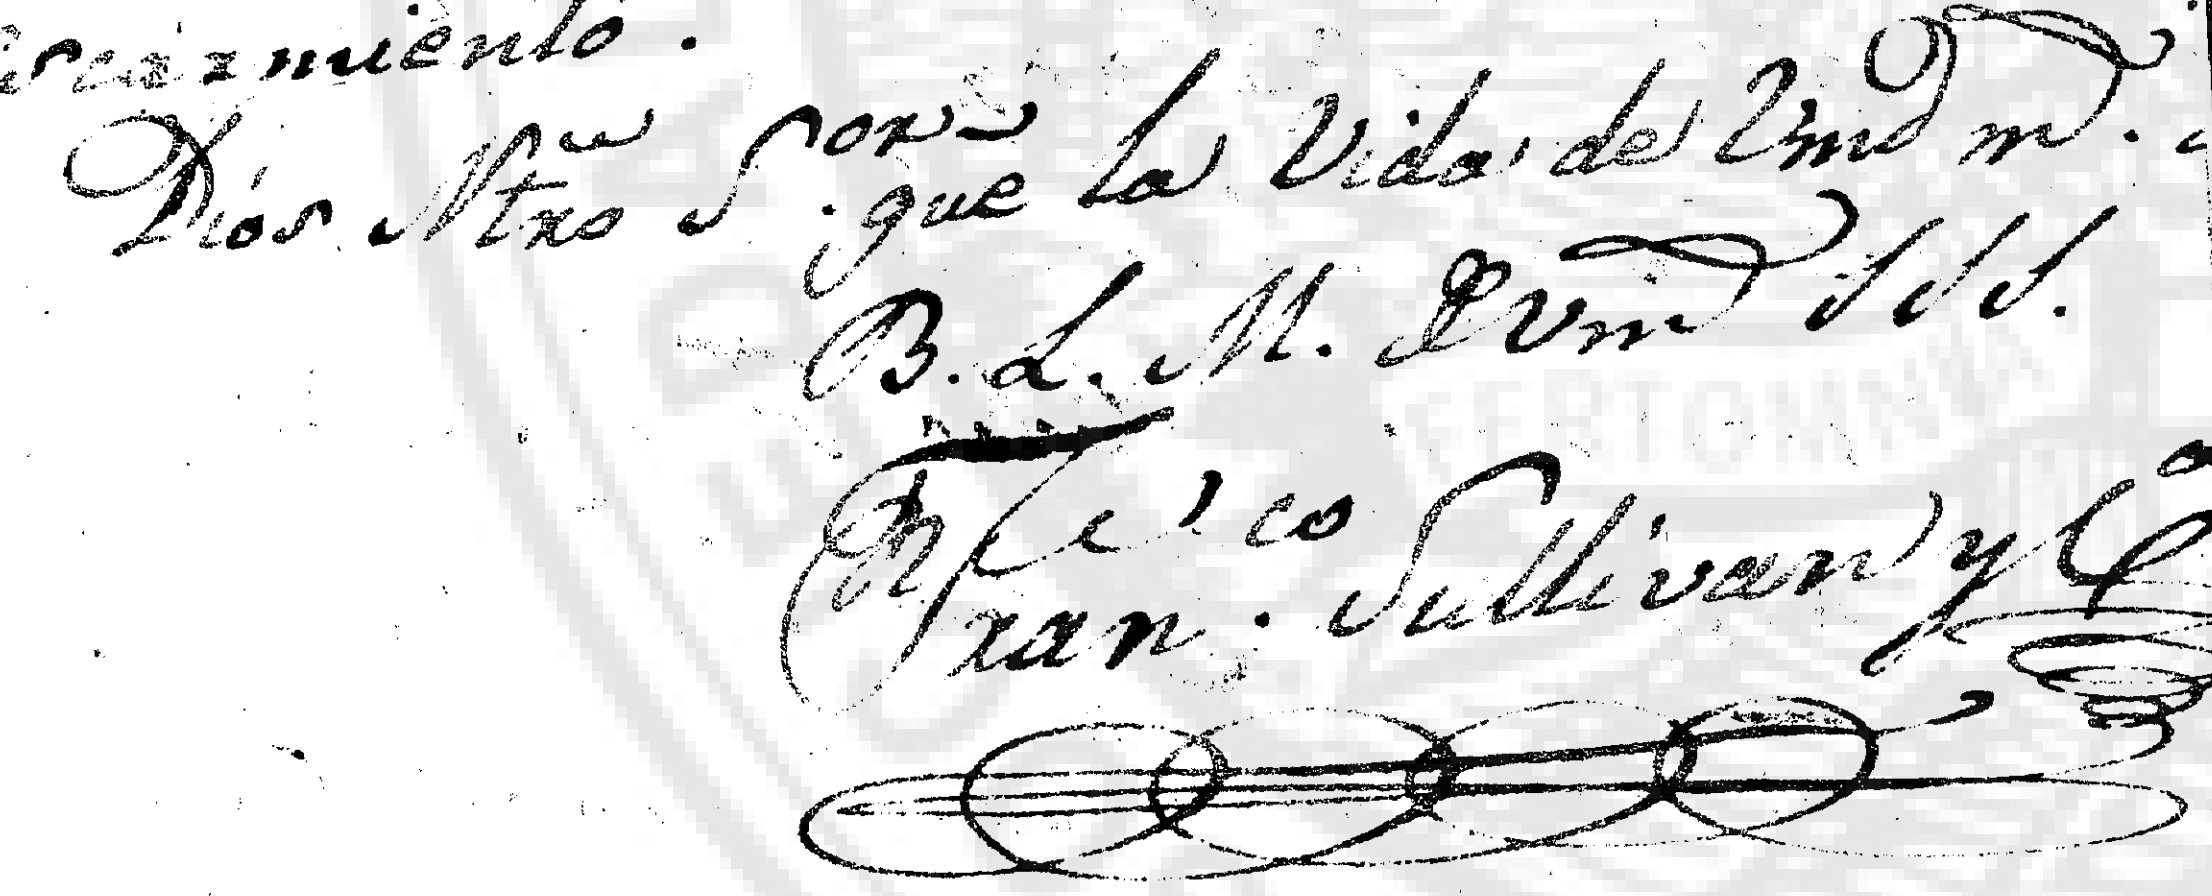 escarmiento.
Dios Ntro Sor gue la Vida de Vmd m.
B. L. M. D Vmd S S S.
Franco. Sullivan y